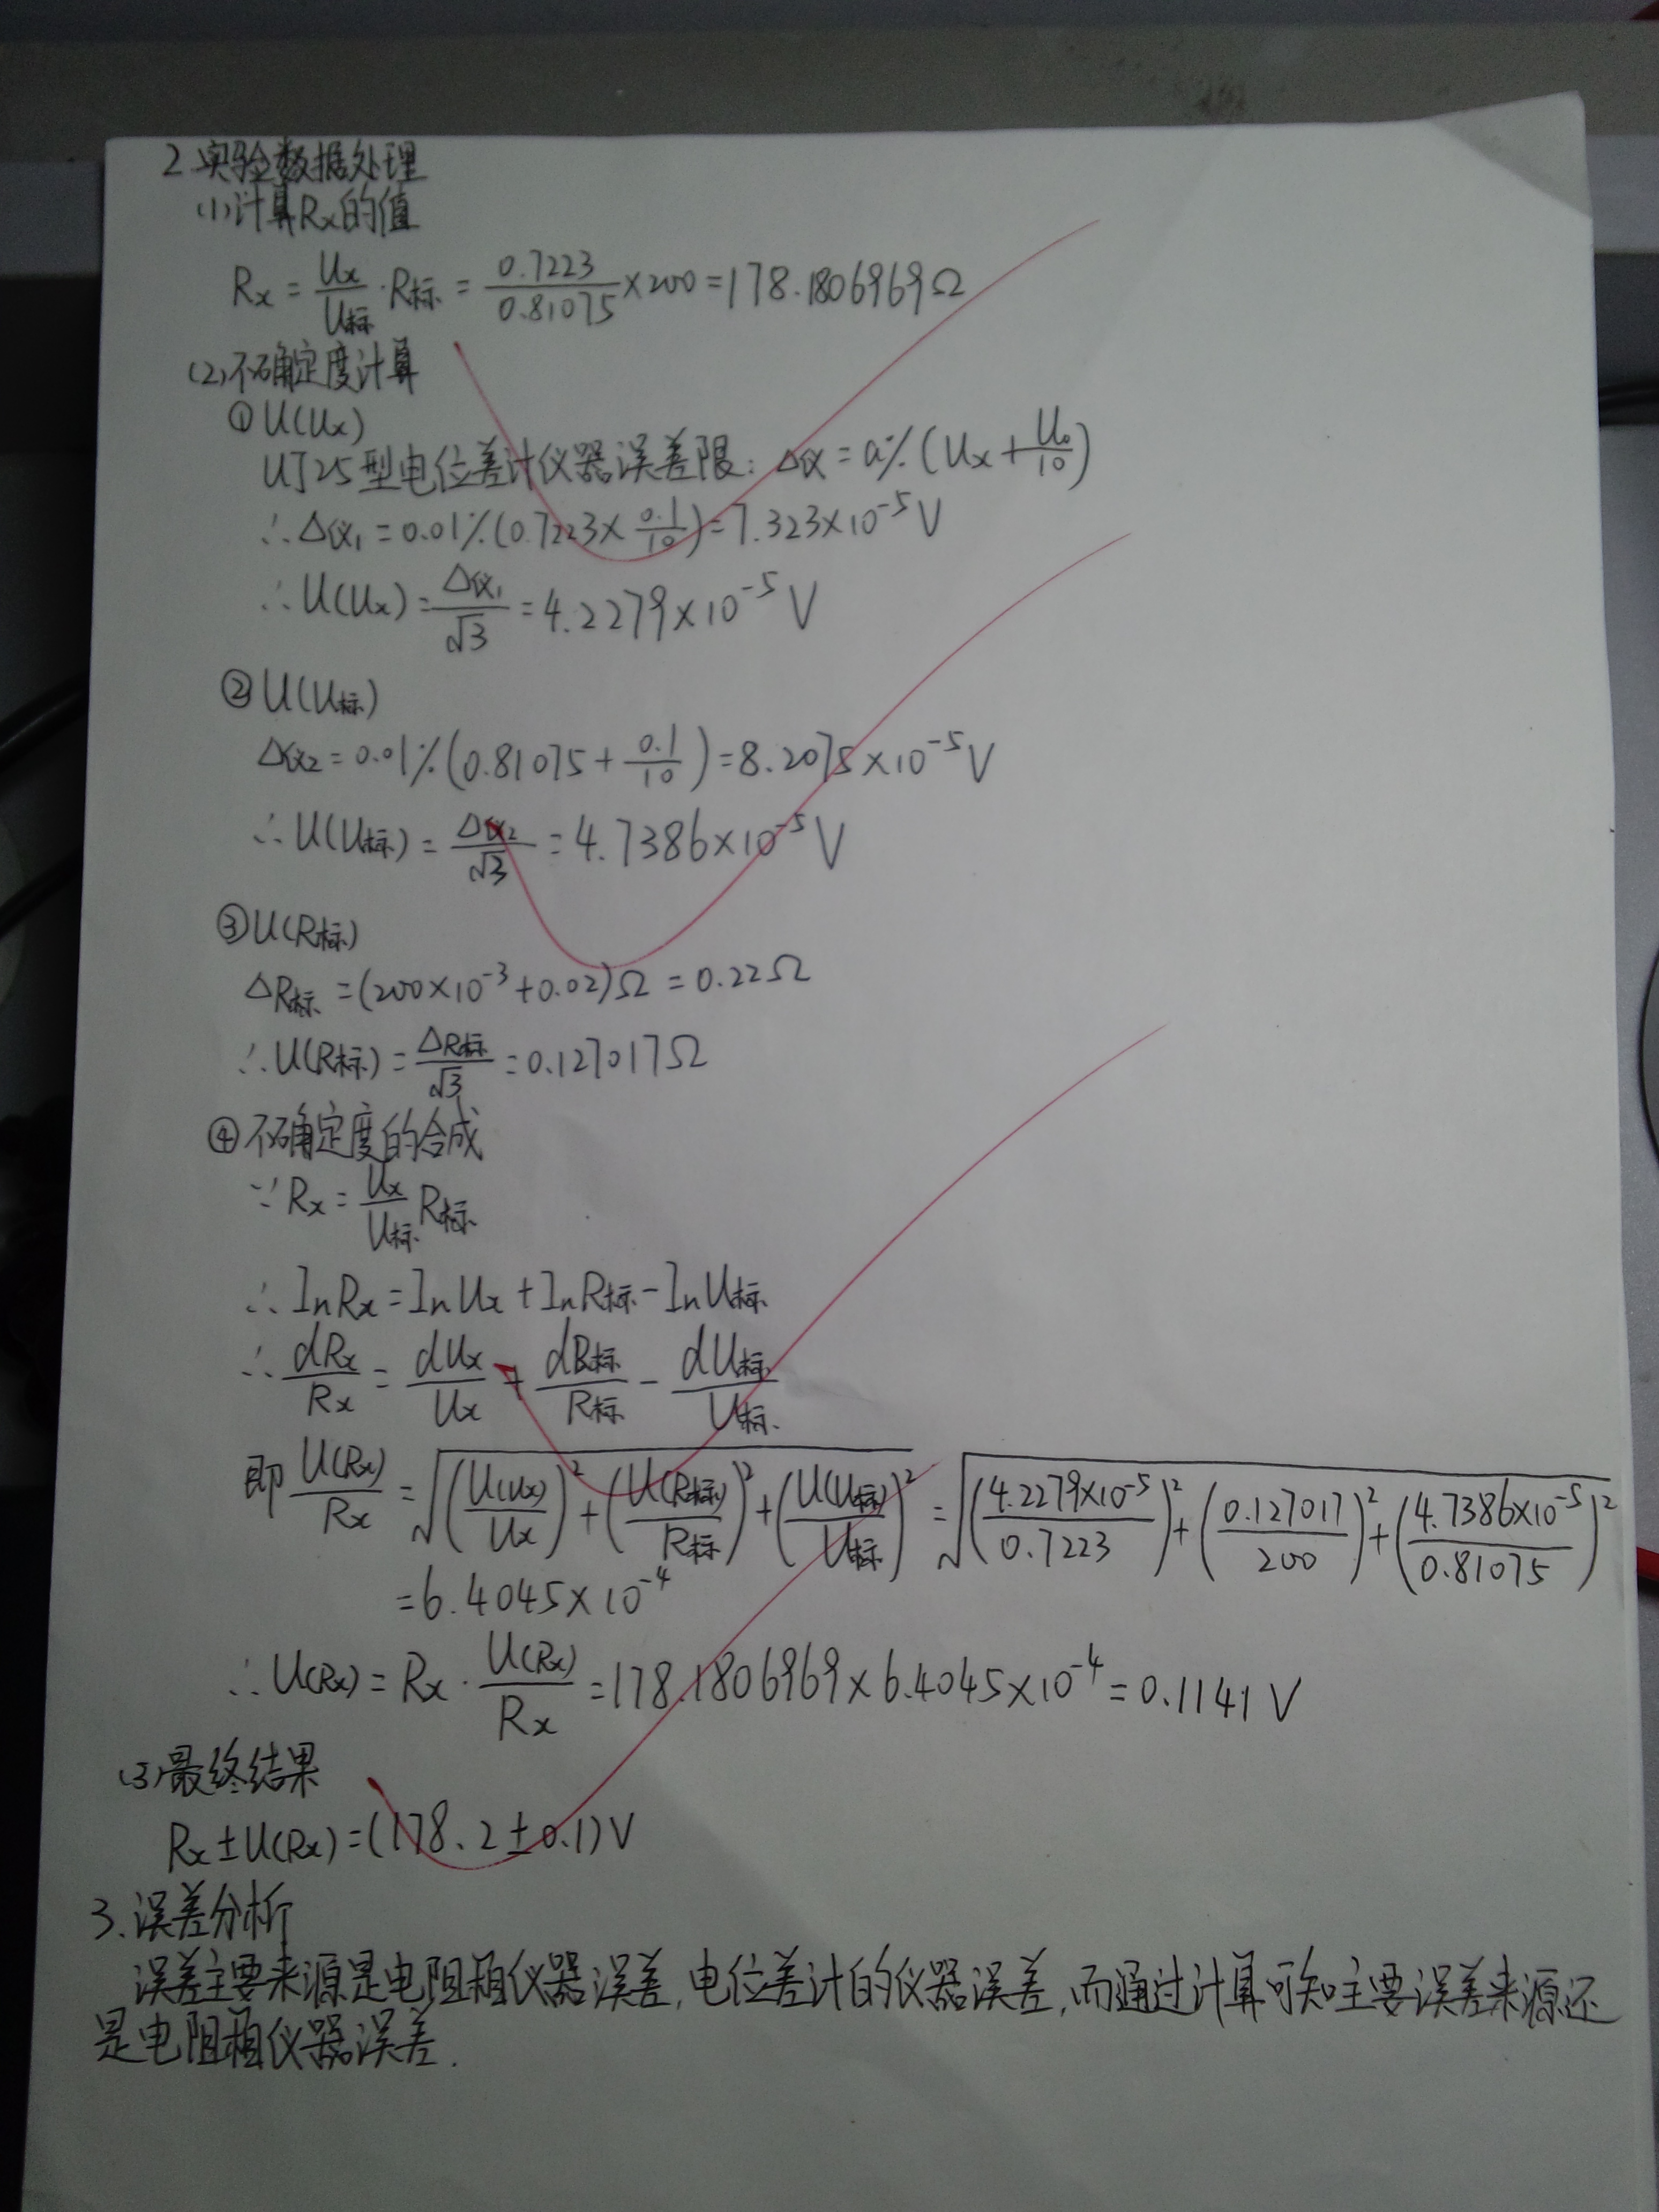 2 实验数据处理
(1)计算Rx的值
Rx = Ux/U标 · R标 = 0.7223/0.81075 × 200 = 178.1806969Ω
(2)不确定度计算
① U(Ux)
UJ25型电位差计仪器误差限: Δ仪 = a%(Ux + U0/10)
∴ Δ仪1 = 0.01%(0.7223 × 0.1/10) = 7.323×10⁻⁵ V
∴ U(Ux) = Δ仪1/√3 = 4.2279×10⁻⁵ V
② U(U标)
Δ仪2 = 0.01%(0.81075 + 0.1/10) = 8.2075×10⁻⁵ V
∴ U(U标) = Δ仪2/√3 = 4.7386×10⁻⁵ V
③ U(R标)
ΔR标 = (200×10⁻³ + 0.02)Ω = 0.22Ω
∴ U(R标) = ΔR标/√3 = 0.127017Ω
④ 不确定度的合成
∵ Rx = Ux/U标 R标
∴ InRx = InUx + InR标 - InU标
∴ dRx/Rx = dUx/Ux + dR标/R标 - dU标/U标
即 U(Rx)/Rx = √((U(Ux)/Ux)² + (U(R标)/R标)² + (U(U标)/U标)²) = √((4.2279×10⁻⁵/0.7223)² + (0.127017/200)² + (4.7386×10⁻⁵/0.81075)²)
= 6.4045×10⁻⁴
∴ U(Rx) = Rx · U(Rx)/Rx = 178.1806969 × 6.4045×10⁻⁴ = 0.1141 V
(3)最终结果
Rx ± U(Rx) = (178.2 ± 0.1) V
3.误差分析
误差主要来源是电阻箱仪器误差,电位差计的仪器误差,而通过计算可知主要误差来源还
是电阻箱仪器误差.